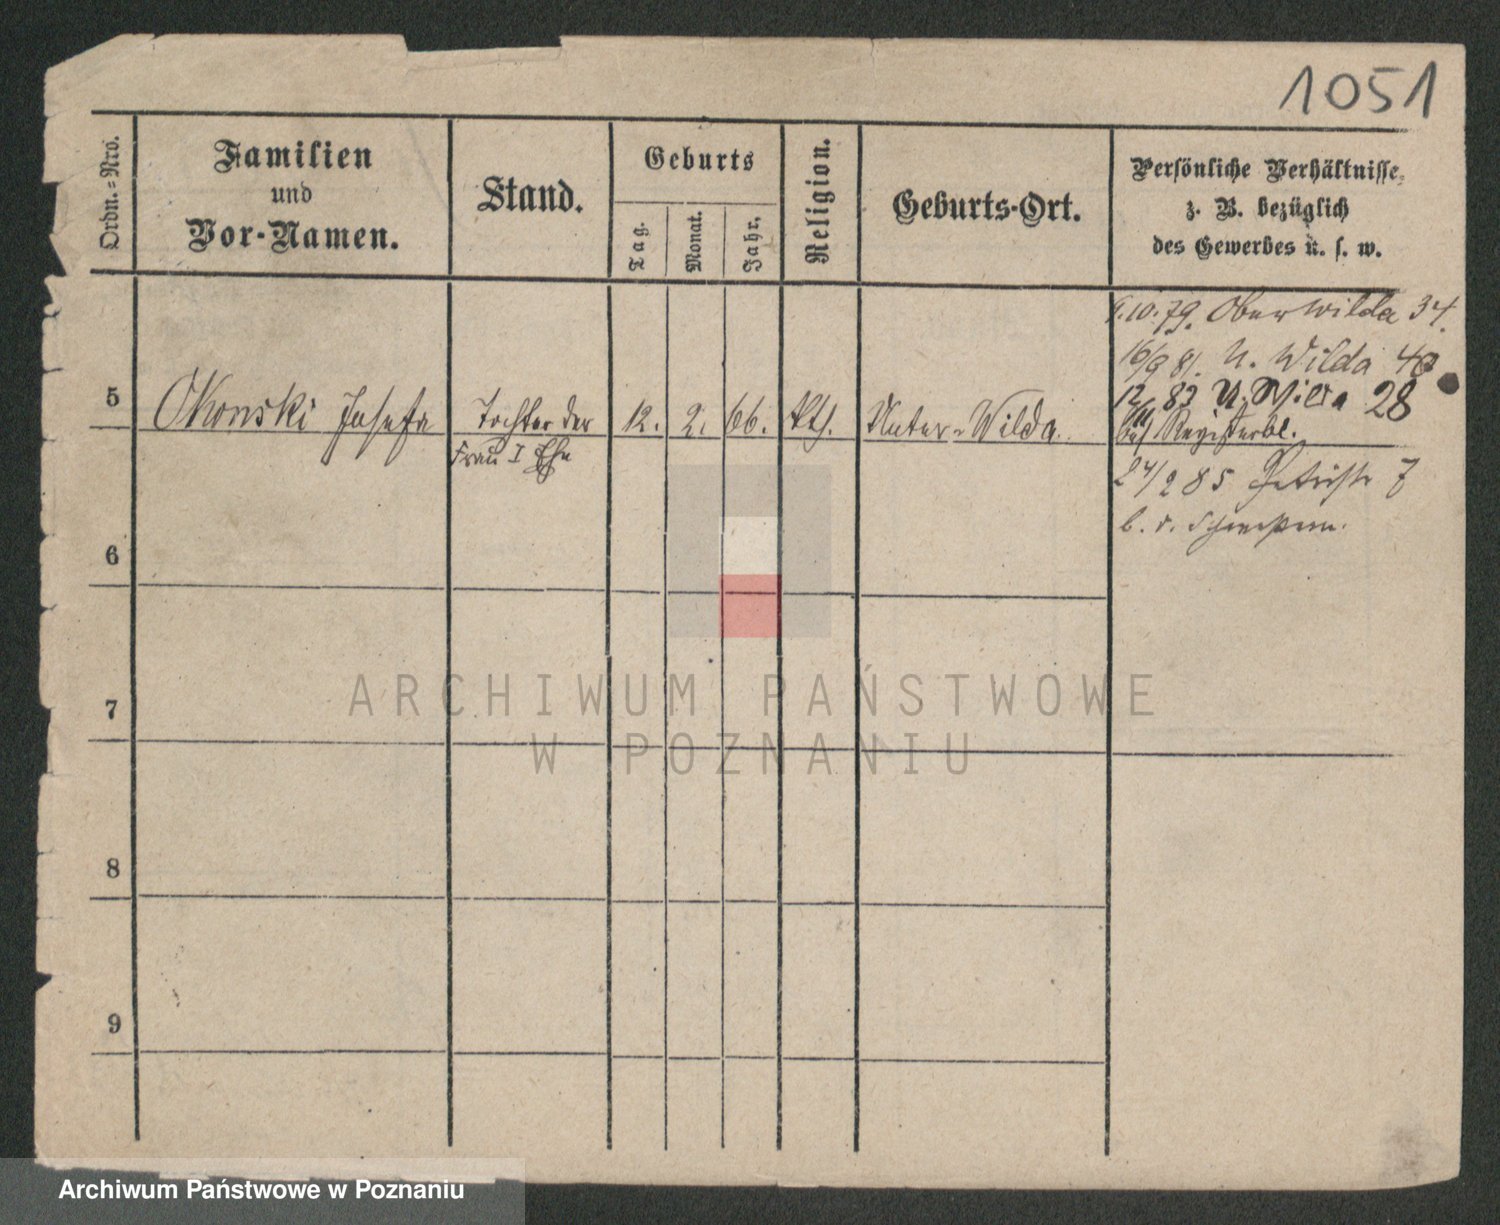 1051
Ordn.=Nro.
Familien
und
Vor-Namen.
Stand.
Geburts
Tag.
Monat.
Jahr.
Religion.
Geburts-Ort.
Persönliche Verhältnisse,
z. B. bezüglich
des Gewerbes u. s. w.
10. 79. Ober Wilda 34.
16/9 81. U. Wilda 40
12/ 83 U. Wilda 28
5 Okonski Josefa Tochter der 12. 2. 66. kth. Unter-Wilda.
Frau I Ehe
Registerbl.
24/2 85 7
b. d.
6
7
8
9
ARCHIWUM PAŃSTWOWE
W POZNANIU
Archiwum Państwowe w Poznaniu